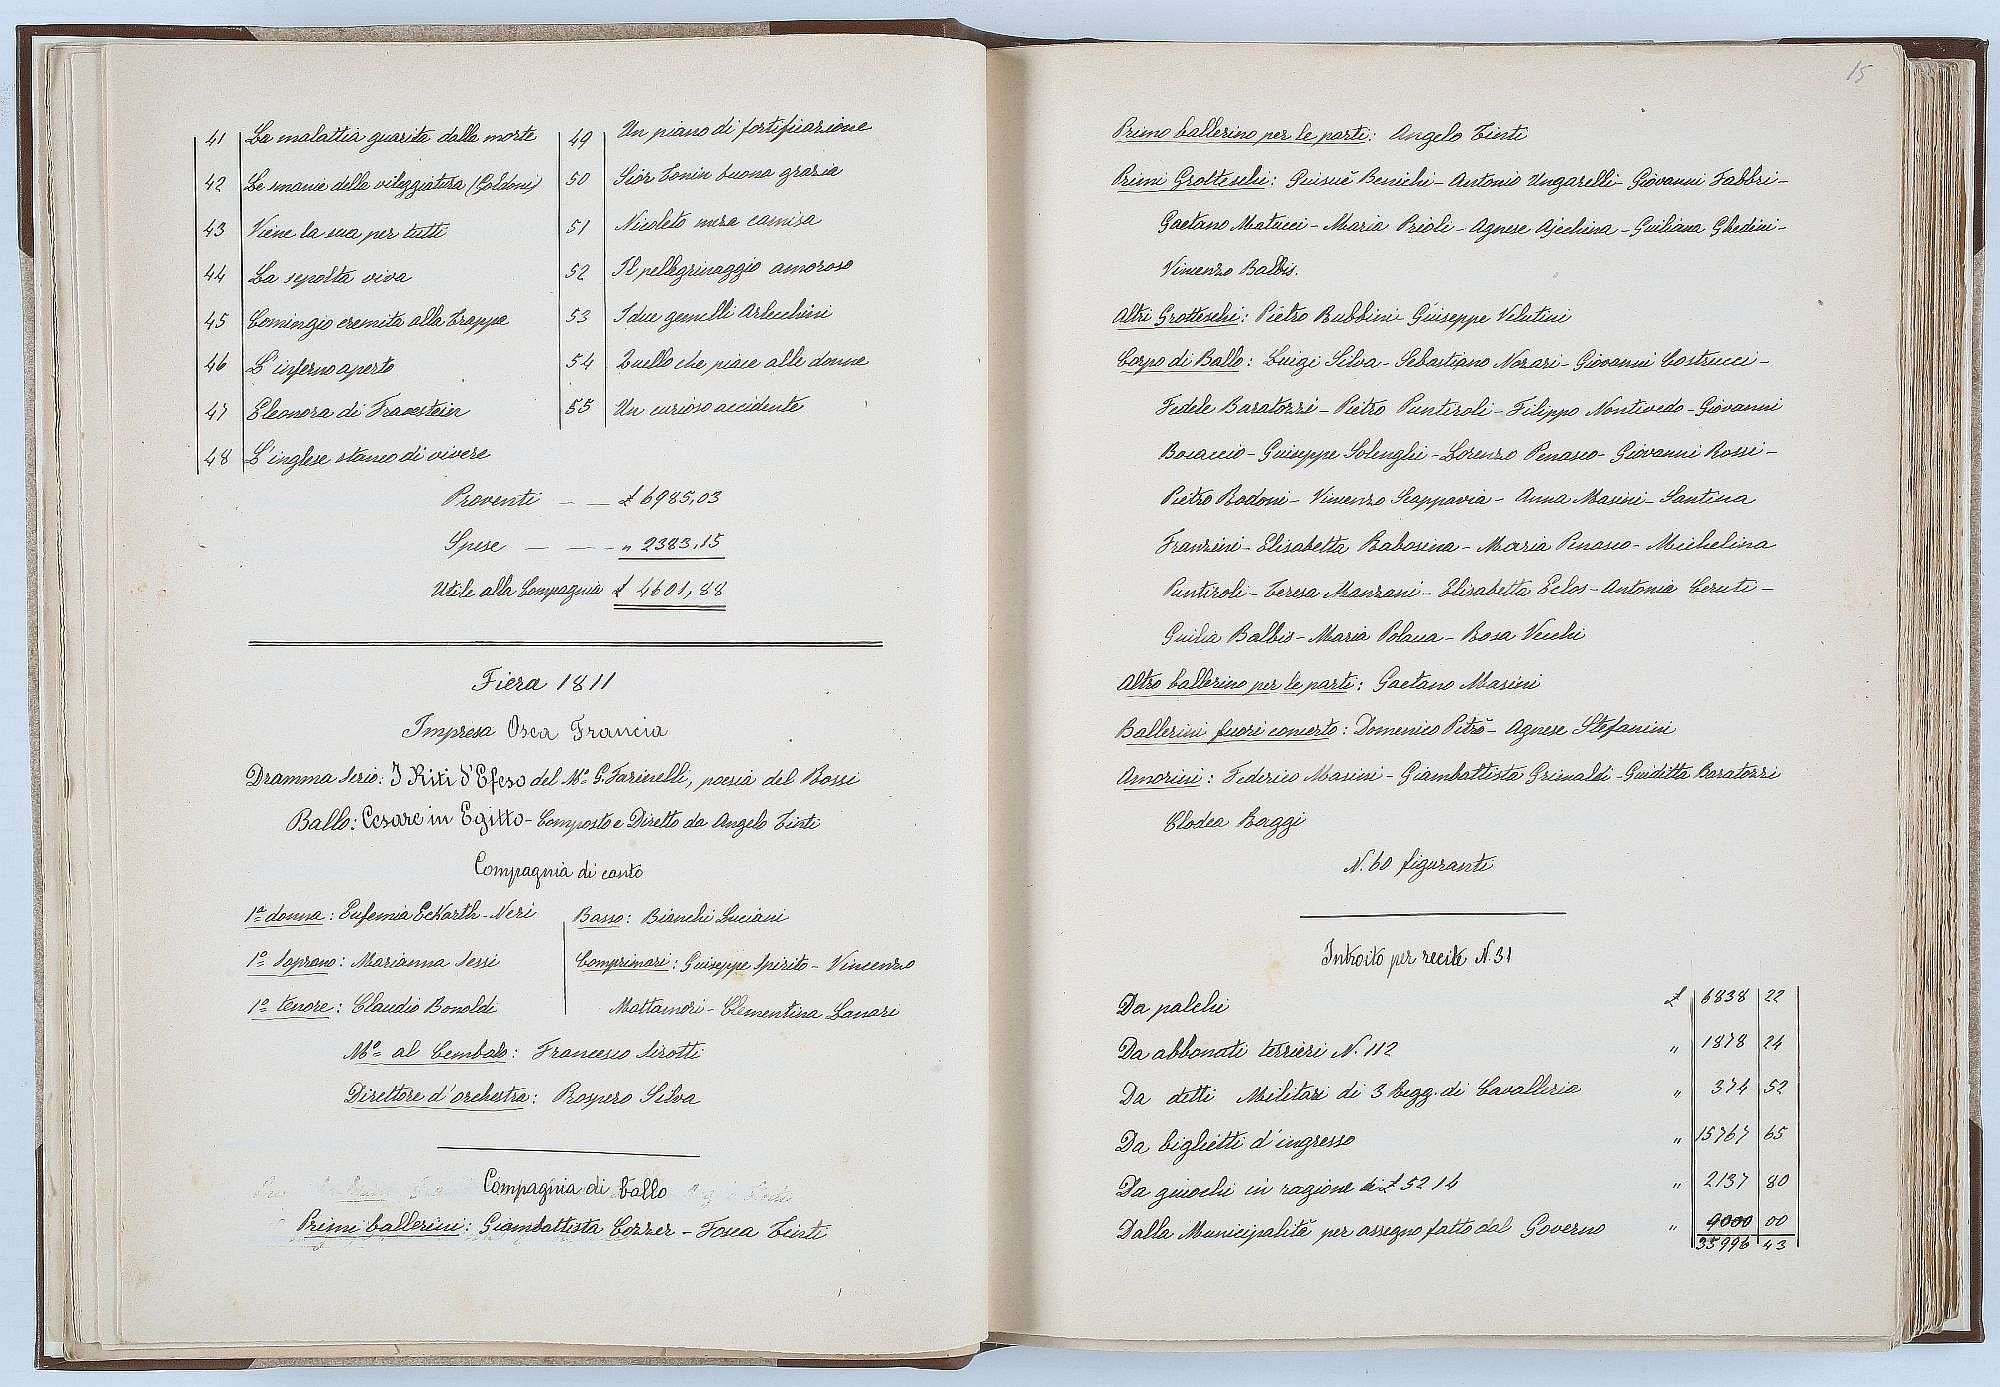 41 La malattia guarita dalla morte
42 Le smanie della vileggiatura (Goldoni)
43 Viene la sua per tutti
44 La sepolta viva
45 Comingio eremita alla Trappa
46 L'inferno aperto
47 Eleonora di Fraestein
48 L'inglese stanco di vivere
49 Un piano di fortificazione
50 Sior Tonin buona grazia
51 Nicoleto meza camisa
52 Il pellegrinaggio amoroso
53 I due gemelli Arlecchini
54 Quello che piace alle donne
55 Un curioso accidente
Proventi — — £ 6985,03
Spese — — - „ 2383,15
Utile alla Compagnia £ 4601,88
Fiera 1811
Impresa Osea Francia
Dramma serio: I Riti d'Efeso del Mo. G. Farinelli, poesia del Rossi
Ballo: Cesare in Egitto - Composto e Diretto da Angelo Tinti
Compagnia di canto
1a donna: Eufemia Eckarth-Neri
1o Soprano: Marianna Sessi
1o tenore: Claudio Bonoldi
Basso: Bianchi Luciani
Comprimari: Guiseppe Spirito - Vincenzo
Mattamori - Clementina Lanari
Mo al Cembalo: Francesco Sirotti
Direttore d'orchestra: Prospero Silva
Compagnia di ballo
Primi ballerini: Giambattista Cozzer - Fosca Tinti
15
Primo ballerino per le parti: Angelo Tinti
Primi Grotteschi: Guisuè Benichi - Antonio Ungarelli - Giovanni Fabbri -
Gaetano Matucci - Maria Prioli - Agnese Ajechina - Guiliana Ghedini -
Vincenzo Balbis.
Altri Grotteschi: Pietro Bubbini - Guiseppe Velutini
Corpo di Ballo: Luigi Silva - Sebastiano Nozari - Giovanni Costrucci -
Fedele Baratozzi - Pietro Puntiroli - Filippo Nontivedo - Giovanni
Bocaccio - Guiseppe Solenghi - Lorenzo Penasco - Giovanni Rossi -
Pietro Bodoni - Vincenzo Scappavia - Anna Masini - Santina
Franzini - Elisabetta Babosina - Maria Penasco - Michelina
Puntiroli - Teresa Manzani - Elisabetta Eclos - Antonia Ceruti -
Guilia Balbis - Maria Polacca - Rosa Vecchi
Altro ballerino per le parti: Gaetano Masini
Ballerini fuori concerto: Domenico Pitrò - Agnese Stefanini
Amorini: Federico Masini - Giambattista Grimaldi - Guiditta Baratozzi
Clodea Raggi
N. 60 figuranti
Introito per recite N. 31
Da palchi £ 6838 22
Da abbonati terrieri N. 112 „ 1878 24
Da detti Militari di 3 Regg. di Cavalleria „ 374 52
Da biglietti d'ingresso „ 15767 65
Da guiochi in ragione di £ 52 14 „ 2137 80
Dalla Municipalità per assegno fatto dal Governo „ 9000 00
35996 43